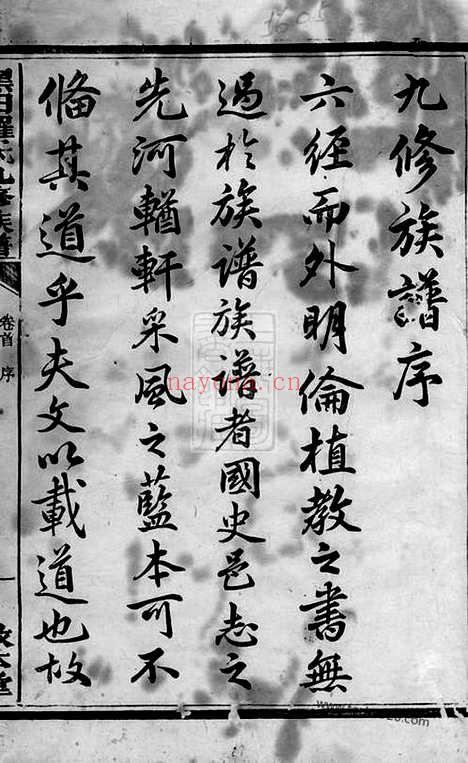 九修族譜序
六經而外明倫植教之書無
過於族譜族譜者國史邑志之
先河輶軒采風之藍本可不
備其道乎夫文以載道也故
羅氏九修族譜
卷首 序
一
敦本堂
nayona.cn